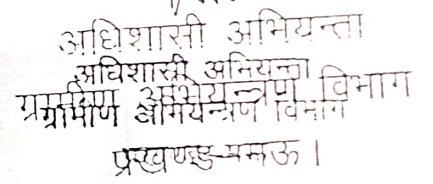 अधिशासी अभियन्ता
अधिशासी अभियन्ता
ग्रामीण अभियन्त्रण विभाग
ग्रामीण अभियन्त्रण विभाग
प्रखण्ड